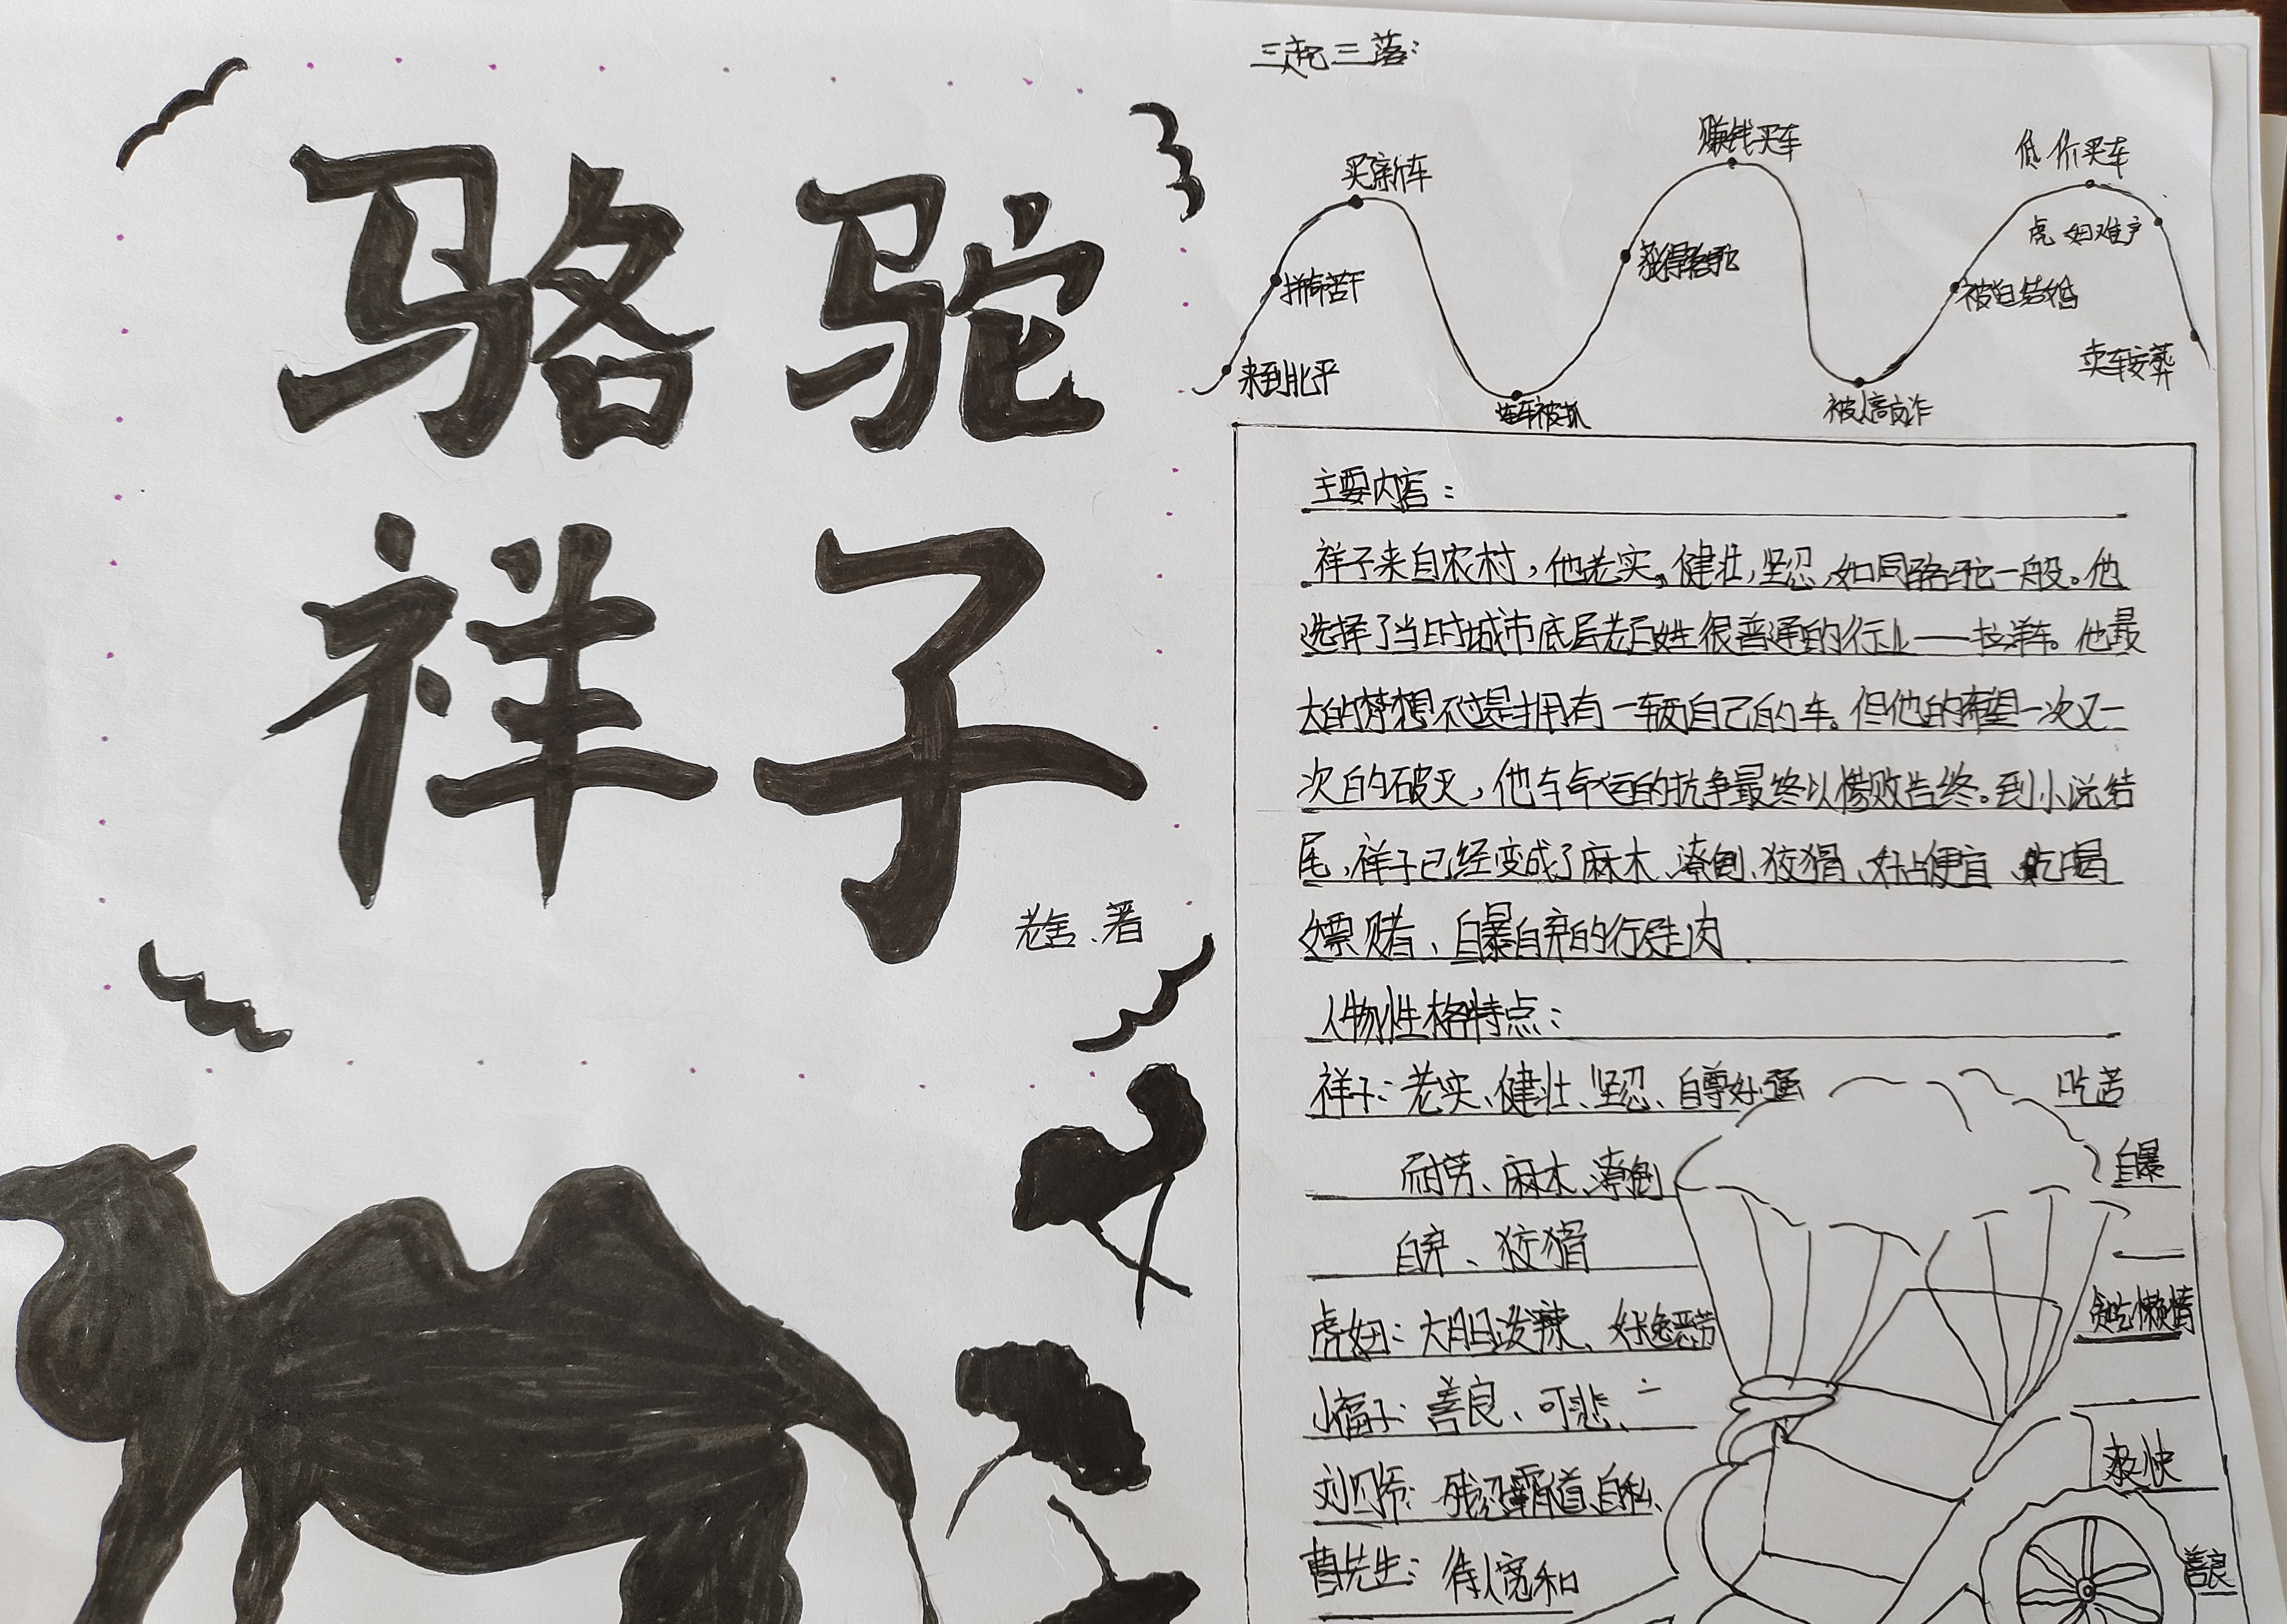 骆驼
祥子
老舍、著
三起三落:
来到北平
拼命苦干
买新车
连车被抓
获得骆驼
赚钱买车
被人高敲诈
被迫结婚
低价买车
虎妞难产
卖车安葬
主要内容:
祥子来自农村,他老实。健壮,坚忍,如同骆驼一般。他
选择了当时城市底层老百姓很普通的行业——拉洋车。他最
大的梦想不过是拥有一辆自己的车。但他的希望一次又一
次的破灭,他与命运的抗争最终以惨败告终。到小说结
尾,祥子已经变成了麻木、潦倒、狡猾、好占便宜、吃喝
嫖赌、自暴自弃的行尸走肉
人物性格特点:
祥子:老实、健壮、坚忍、自尊好强 吃苦
耐劳、麻木、潦倒 自暴
自弃、狡猾
虎妞:大胆泼辣、好逸恶劳 贪吃懒惰
小福子:善良、可悲、
刘四爷:残忍霸道、自私、 爽快
曹先生:待人宽和 善良